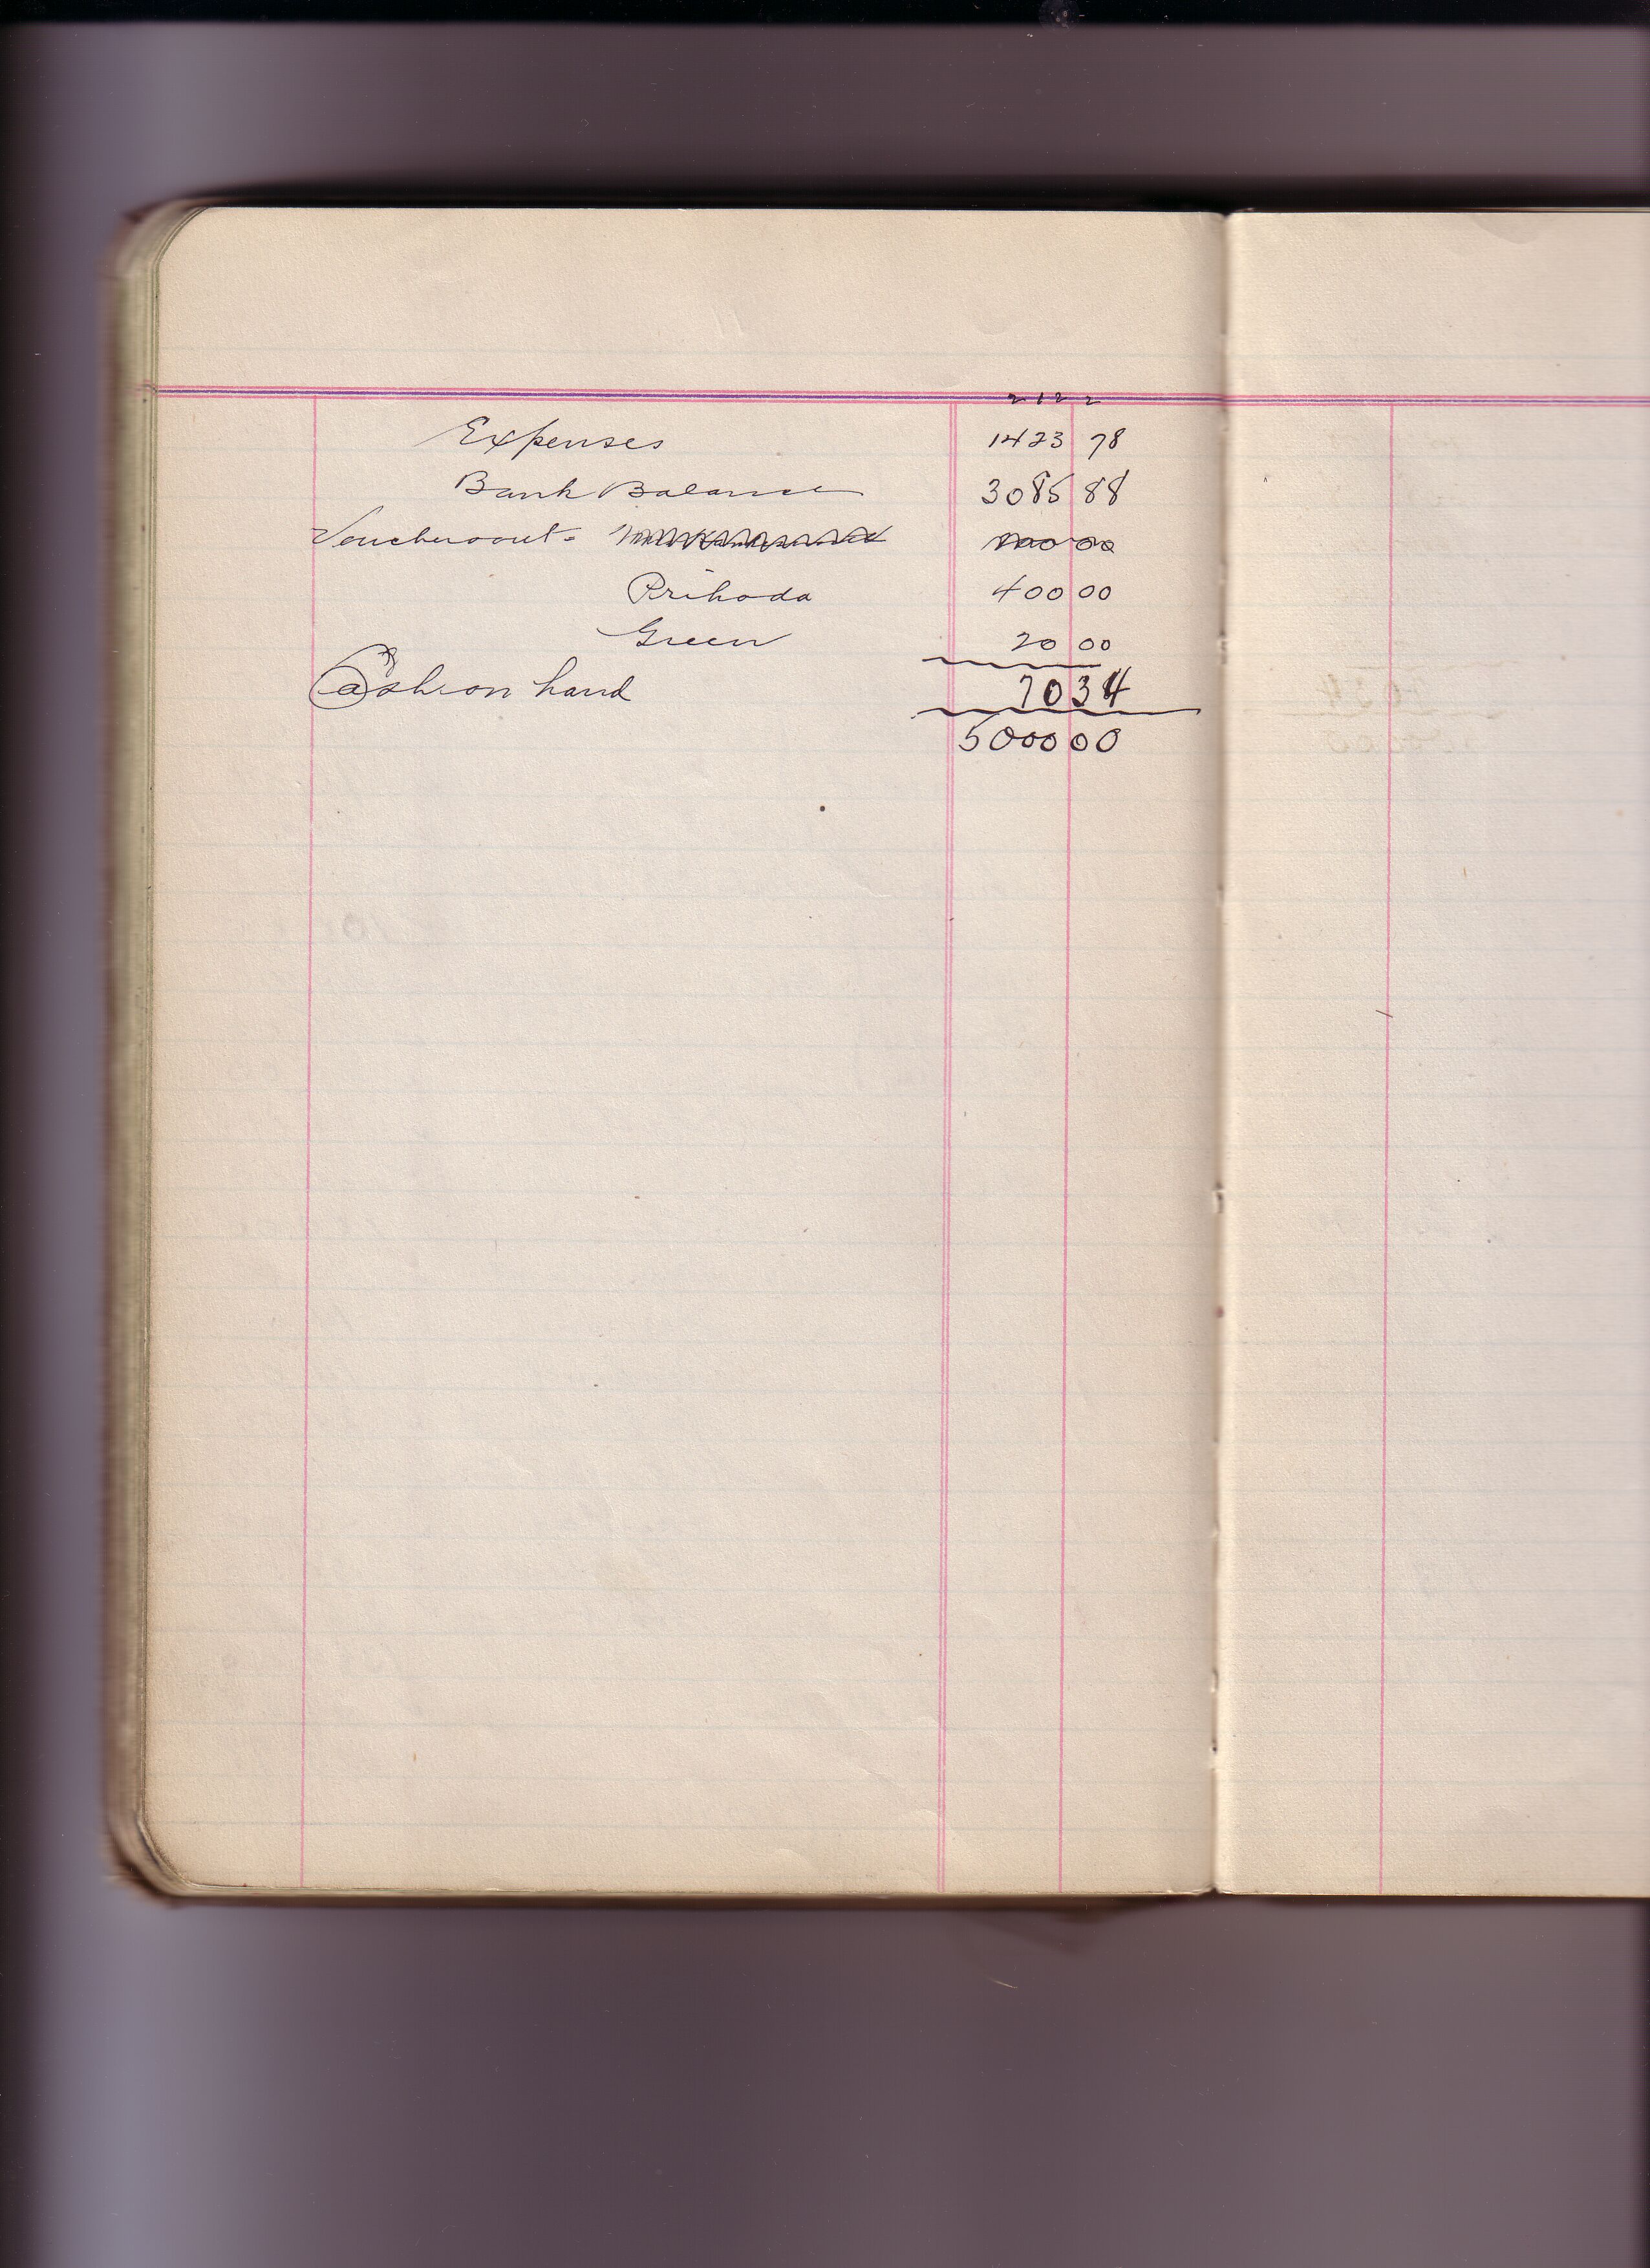 2 1 2 2
Expenses 1423 78
Bank Balance 3085 88
Vouchers out -
Prihoda 400 00
Green 20 00
Cash on hand 70 34
5000 00